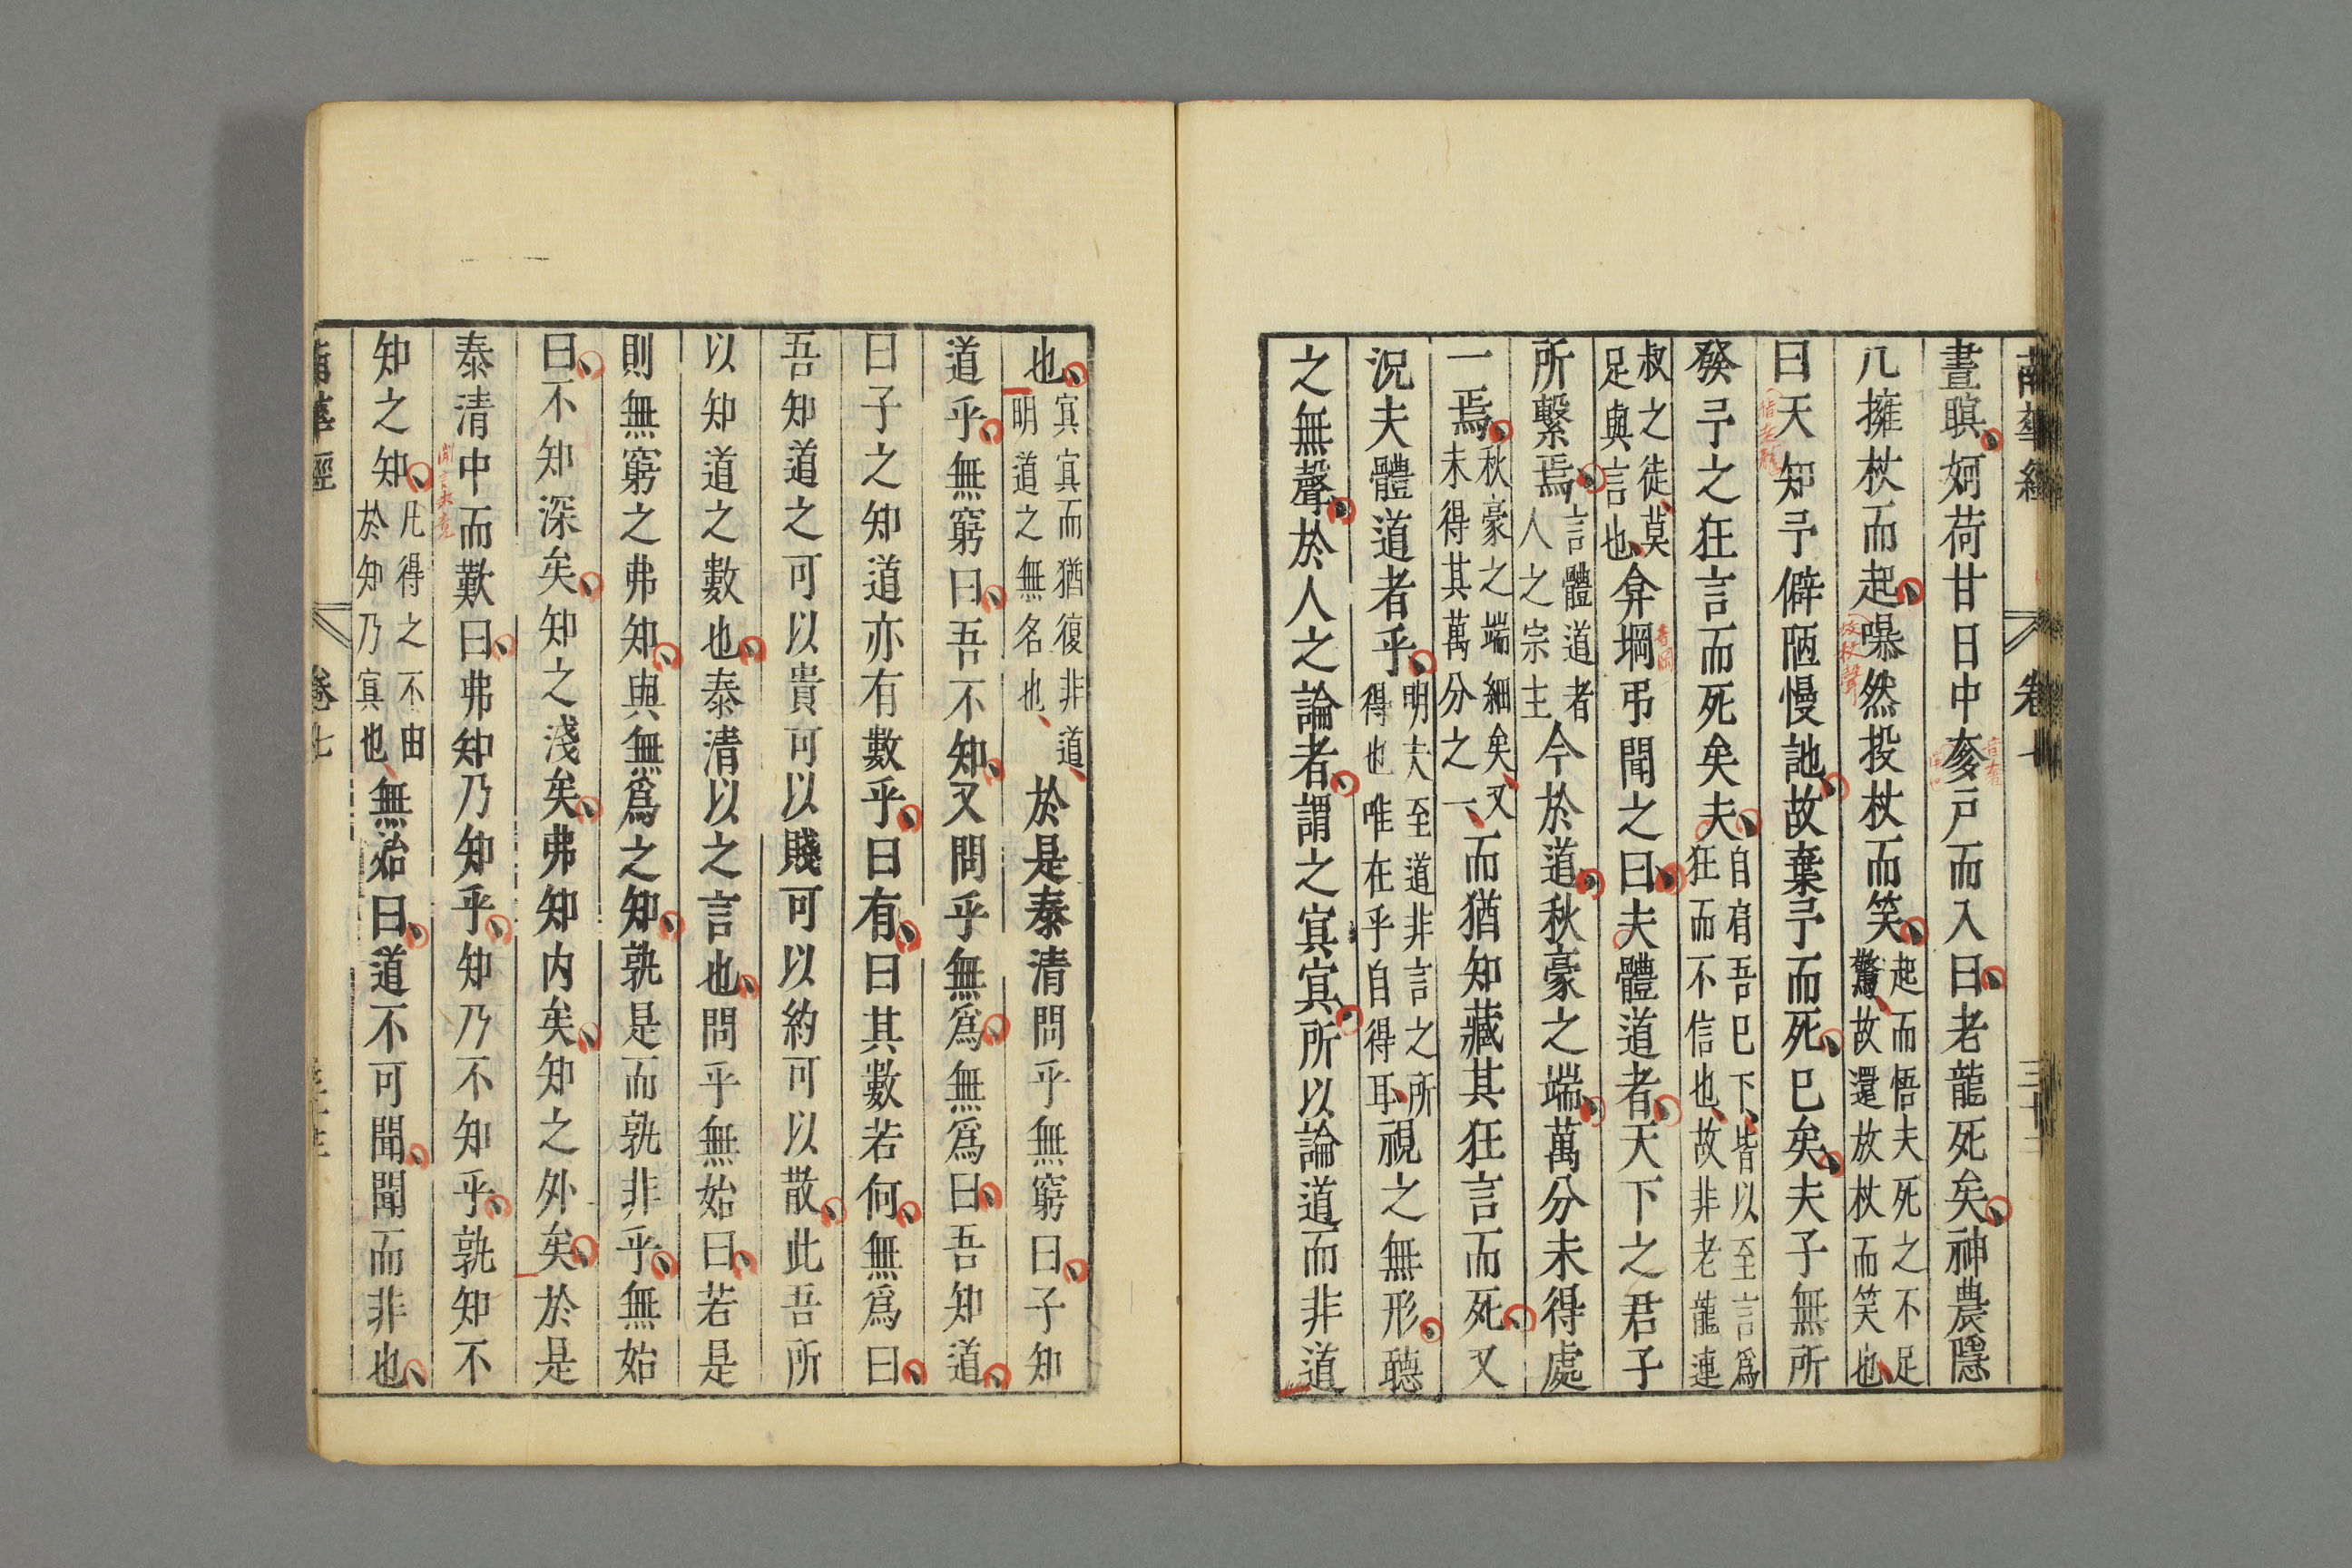 南華經 卷七
晝瞑妸荷甘日中奓戸而入曰老龍死矣神農隱
几擁杖而起嚗然投杖而笑起而悟夫死之不足驚故還放杖而笑也
曰天知予僻陋慢訑故棄予而死已矣夫子無所
發予之狂言而死矣夫自肩吾已下皆以至言爲狂而不信也故非老龍連
叔之徒莫足與言也弇堈弔聞之曰夫體道者天下之君子
所繫焉言體道者人之宗主今於道秋豪之端萬分未得處
一焉秋豪之端細矣又未得其萬分之一而猶知藏其狂言而死又
況夫體道者乎明夫至道非言之所得也唯在乎自得耳視之無形聽
之無聲於人之論者謂之冥冥所以論道而非道
也冥冥而猶復非道明道之無名也於是泰清問乎無窮曰子知
道乎無窮曰吾不知又問乎無爲無爲曰吾知道
曰子之知道亦有數乎曰有曰其數若何無爲曰
吾知道之可以貴可以賤可以約可以散此吾所
以知道之數也泰清以之言也問乎無始曰若是
則無窮之弗知與無爲之知孰是而孰非乎無始
曰不知深矣知之淺矣弗知內矣知之外矣於是
泰清中而歎曰弗知乃知乎知乃不知乎孰知不
知之知凡得之不由於知乃冥也無始曰道不可聞聞而非也
南華經 卷七